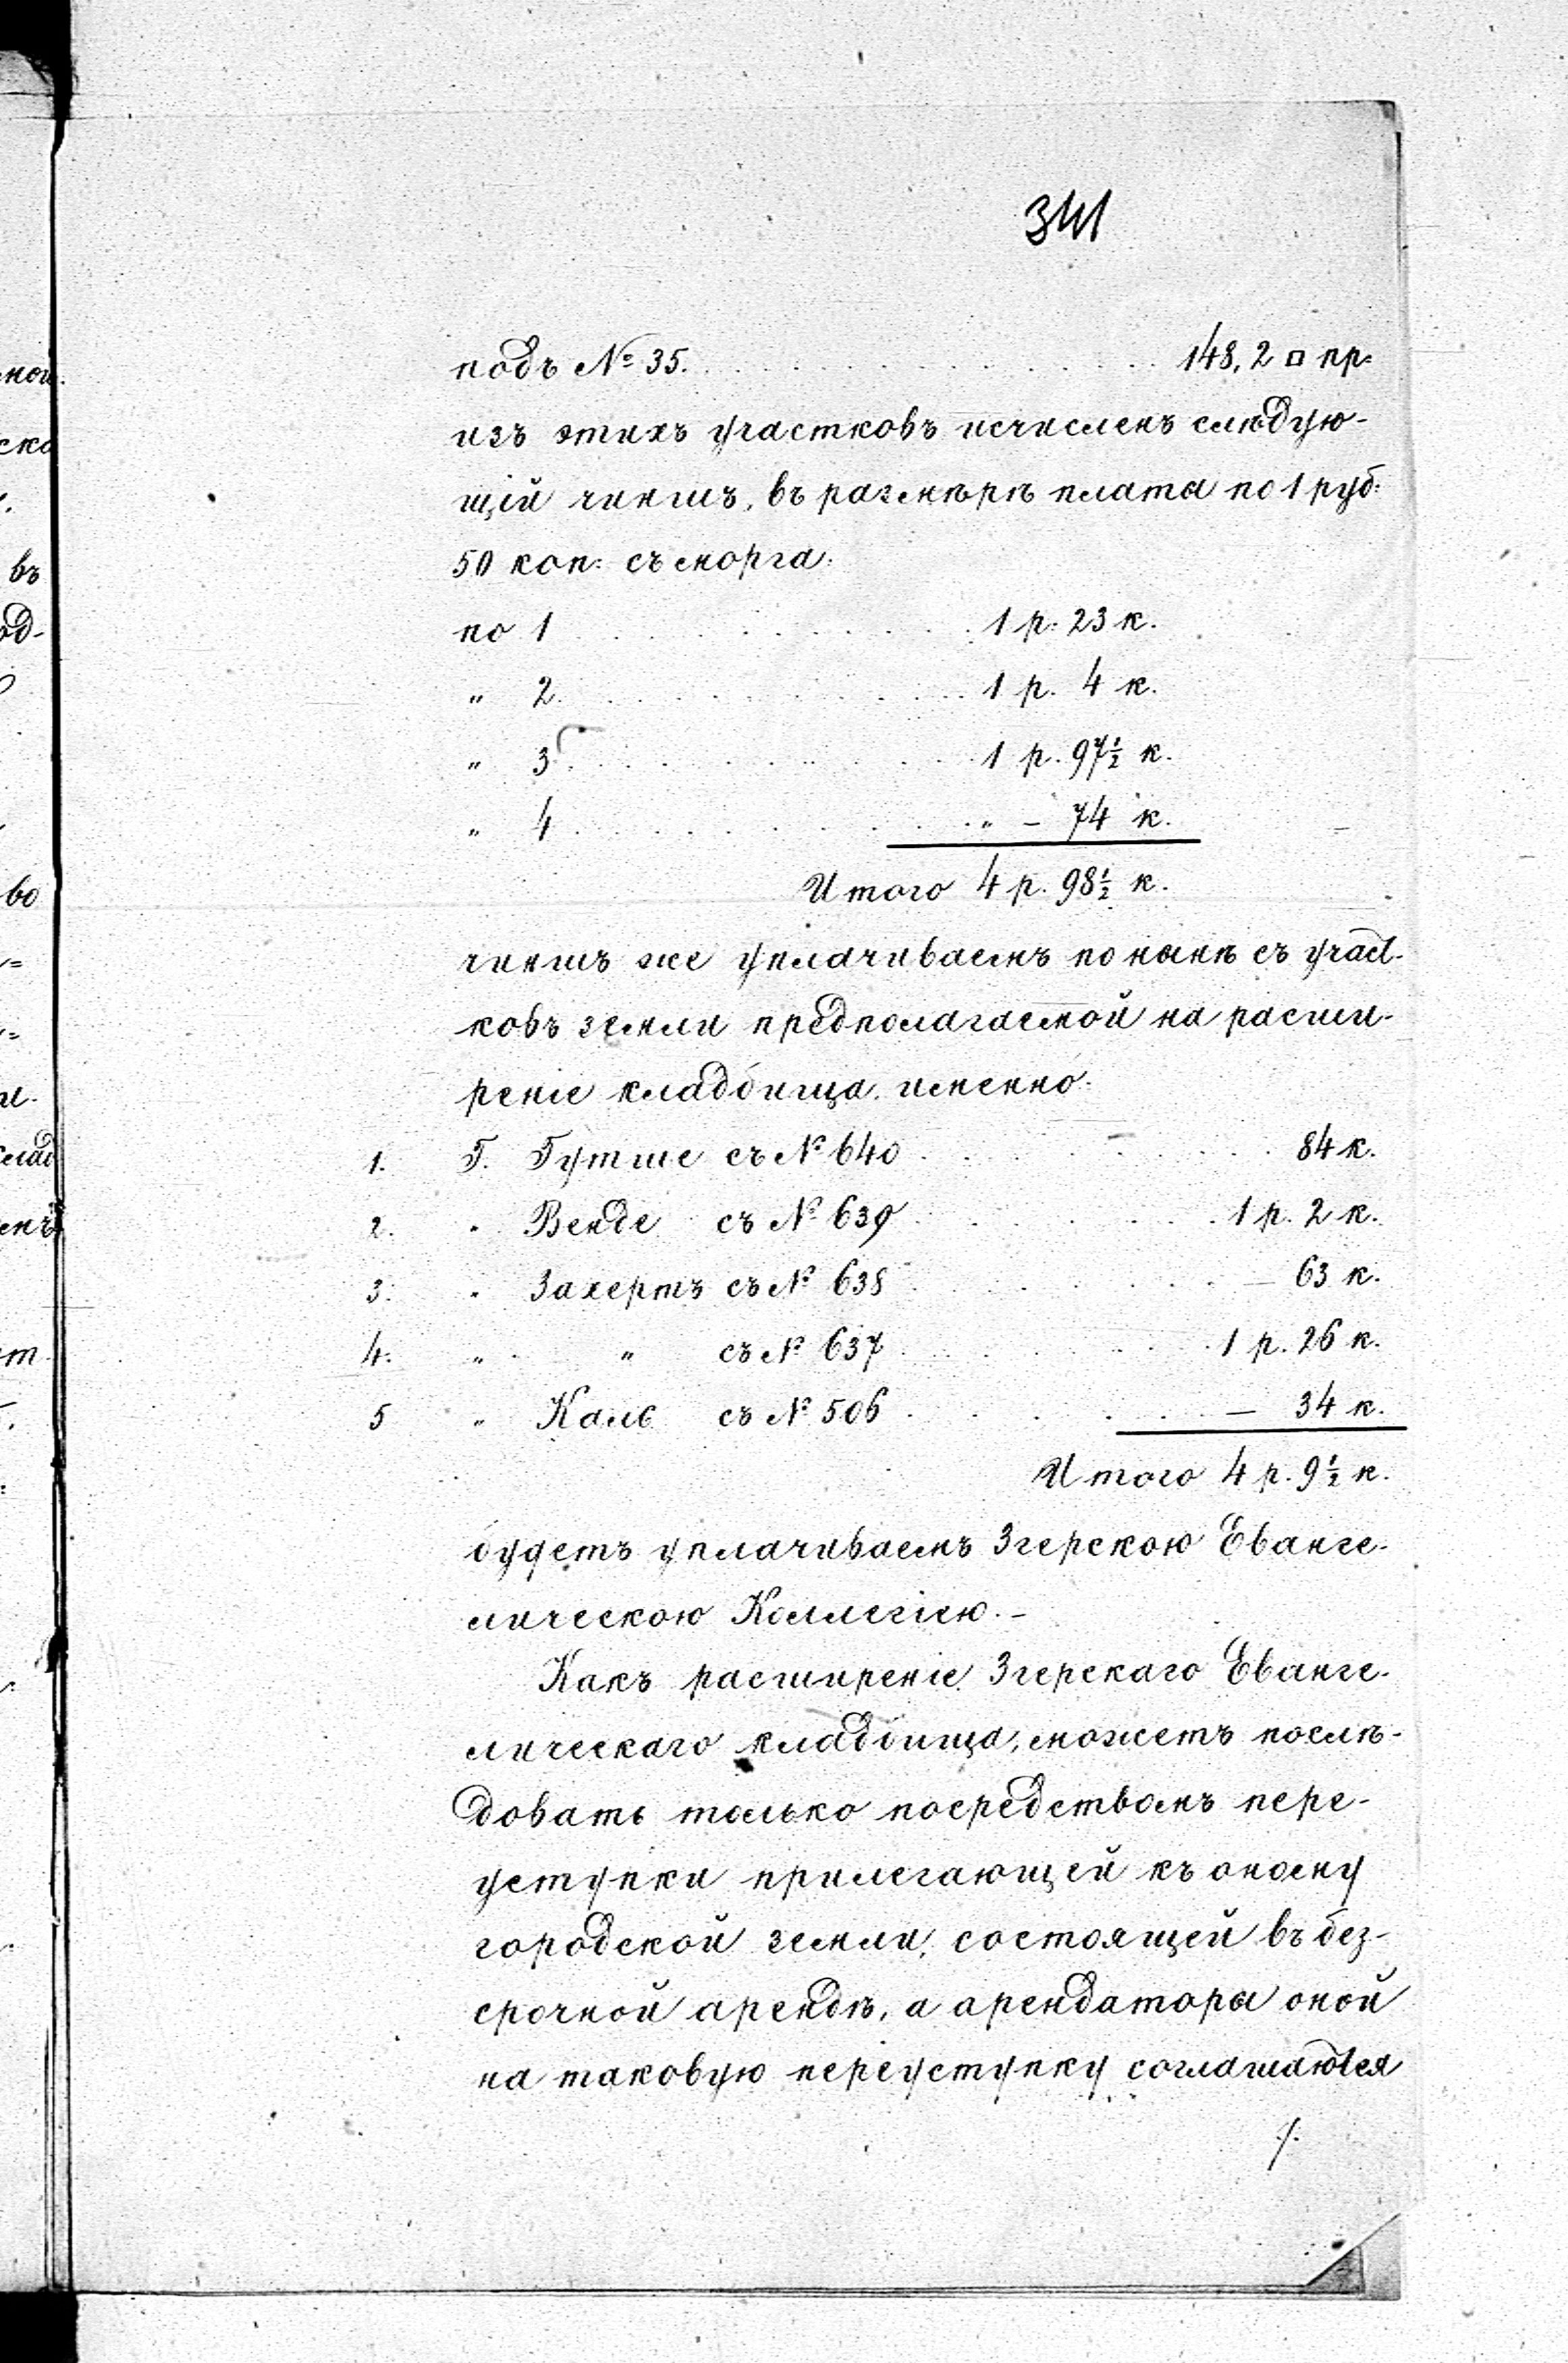 341
подъ № 35. . . . . . . . . . . . . . . . . 148,2 □ пр.
изъ этихъ участковъ исчисленъ слѣдую-
щій чиншъ, въ размѣрѣ платы по 1 руб:
50 коп: съ морга:
по 1 . . . . . . . . . . . . 1 р. 23 к.
" 2. . . . . . . . . . . . 1 р. 4 к.
" 3. . . . . . . . . . . . 1 р. 97½ к.
" 4 . . . . . . . . . . . . " – 74 к.
Итого 4 р. 98½ к.
чиншъ же уплачиваемъ по нынѣ съ участ-
ковъ земли предполагаемой на расши-
реніе кладбища, именно:
1. Г. Гутше съ № 640 . . . . . . . . 84 к.
2. " Венде съ № 639 . . . . . . . . 1 р. 2 к.
3. " Захертъ съ № 638 . . . . . . . — 63 к.
4. " " съ № 637 . . . . . . . . 1 р. 26 к.
5 " Каль съ № 506 . . . . . . . — 34 к.
Итого 4 р. 9½ к.
будетъ уплачиваемъ Згерскою Еванге-
лическою Коллегіею. –
Какъ расширеніе Згерскаго Еванге-
лическаго кладбища, можетъ послѣ-
довать только посредствомъ пере-
уступки прилегающей къ оному
городской земли, состоящей въ без-
срочной арендѣ, а арендаторы оной
на таковую переуступку соглашаются
./.